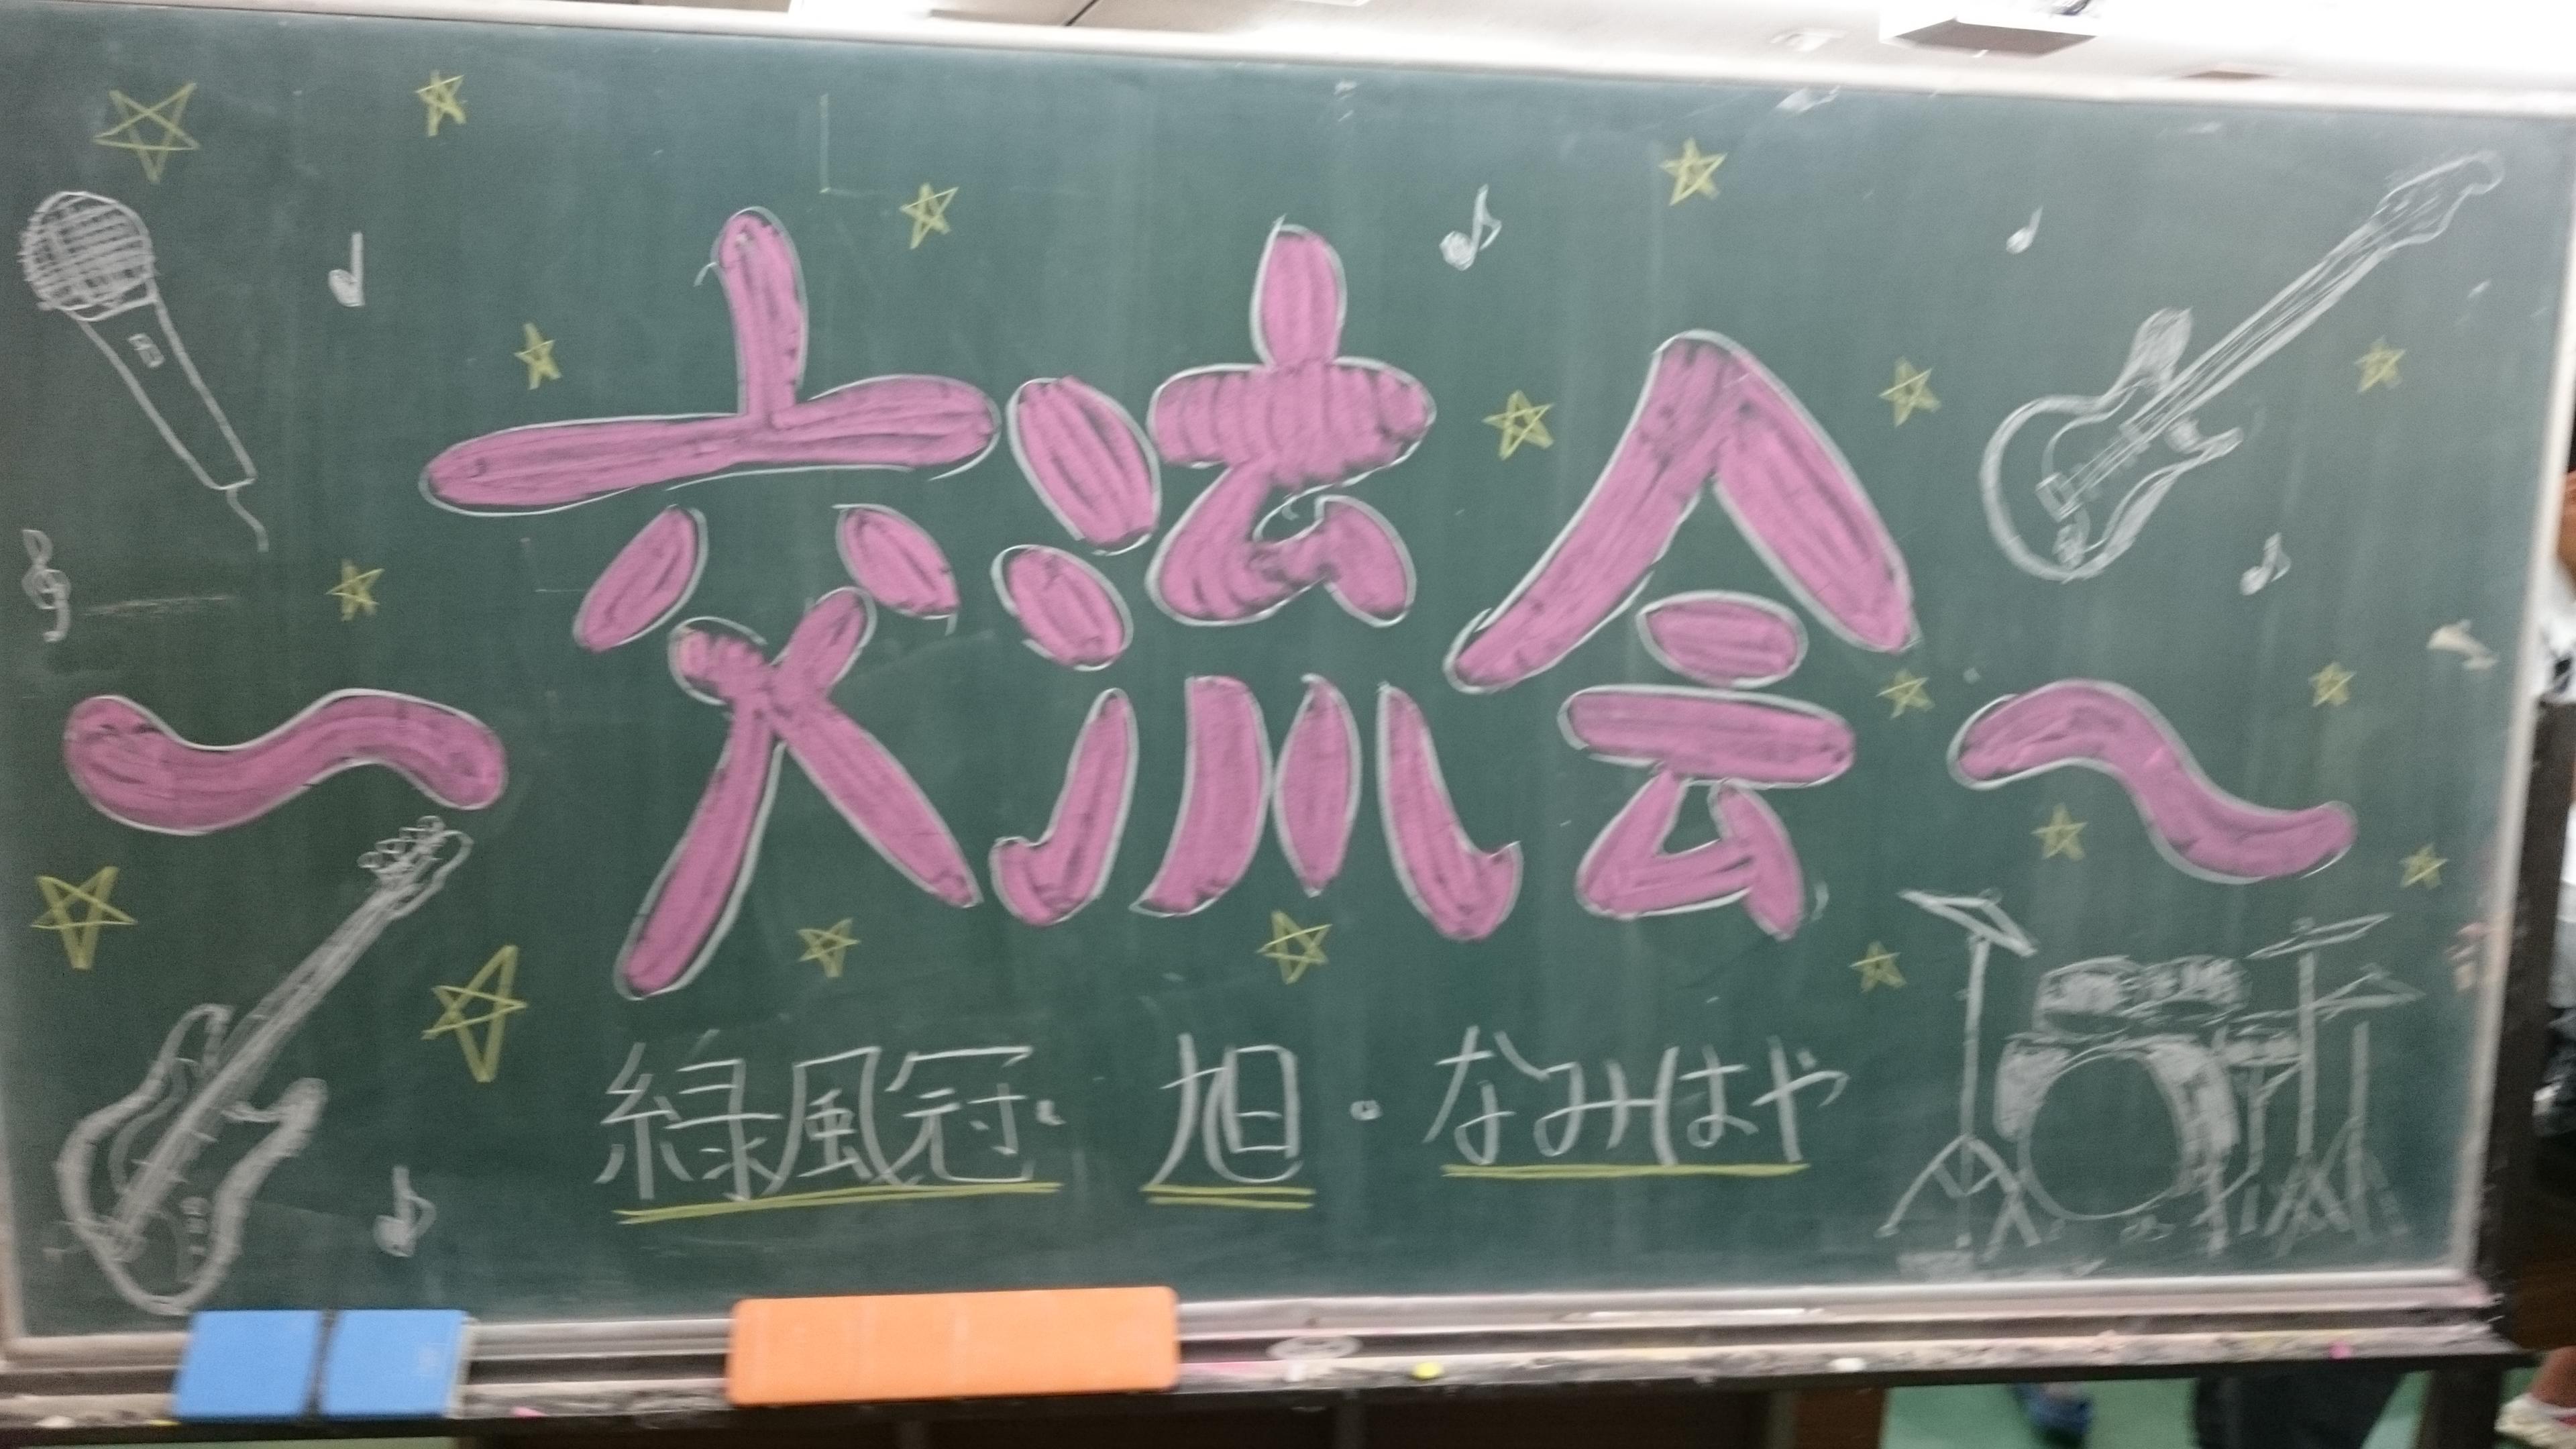 ～交流会～
緑風冠・旭・なみはや